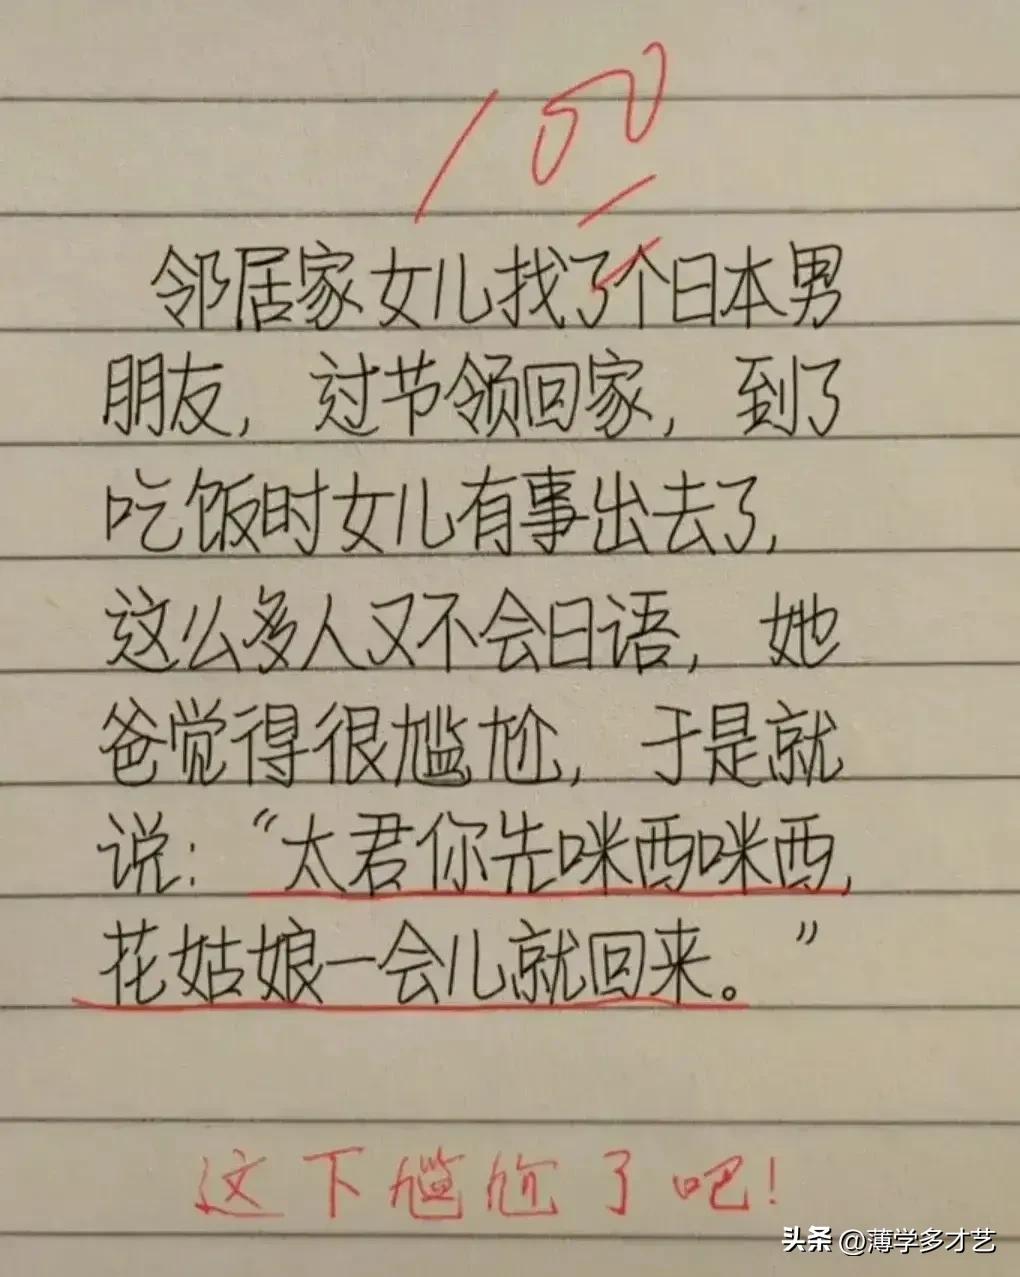 100
邻居家女儿找了个日本男
朋友，过节领回家，到了
吃饭时女儿有事出去了，
这么多人又不会日语，她
爸觉得很尴尬，于是就
说：“太君你先咪西咪西，
花姑娘一会儿就回来。”
这下尴尬了吧！
头条 @薄学多才艺